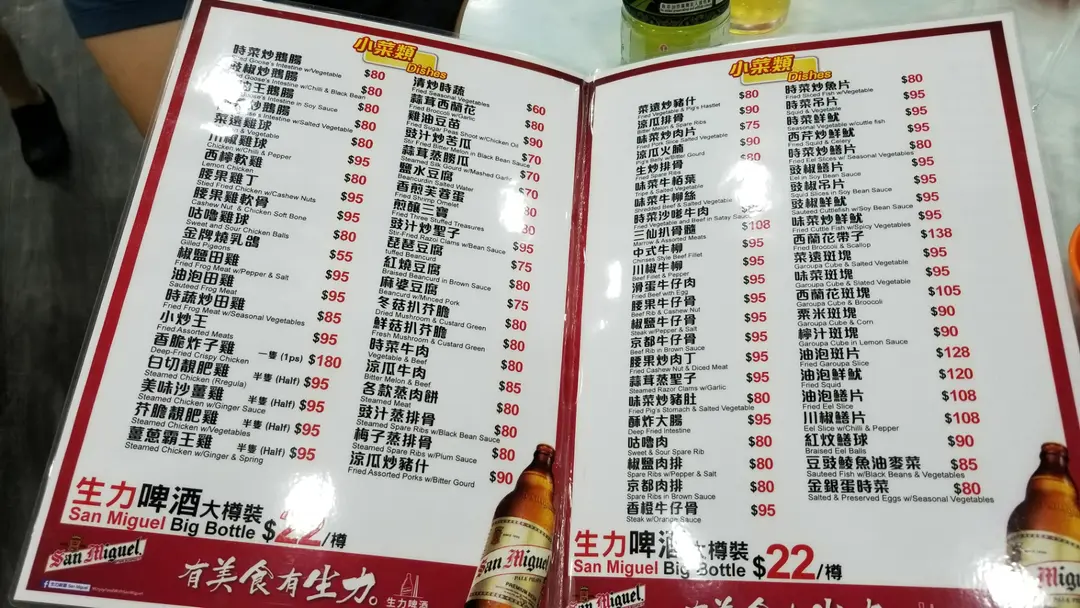 小菜類
Dishes
時菜炒鵝腸 $80
Fried Goose's Intestine w/Vegetable
豉椒炒鵝腸 $80
Goose's Intestine w/Chilli & Black Bean
油王鵝腸 $80
Goose's Intestine in Soy Sauce
炒鵝腸 $80
Goose's Intestine w/Salted Vegetable
菜遠雞球 $80
Chicken & Vegetable
川椒雞球 $95
Chicken w/Chilli & Pepper
西檸軟雞 $80
Lemon Chicken
腰果雞丁 $95
Stied Fried Chicken w/Cashew Nuts
腰果雞軟骨 $95
Cashew Nut & Chicken Soft Bone
咕嚕雞球 $80
Sweet and Sour Chicken Balls
金牌燒乳鴿 $55
Gilled Pigeons
椒鹽田雞 $95
Fried Frog Meat w/Pepper & Salt
油泡田雞 $95
Sauteed Frog Meat
時蔬炒田雞 $85
Fried Frog Meat w/Seasonal Vegetables
小炒王 $95
Fried Assorted Meats
香脆炸子雞 一隻 (1ps) $180
Deep-Fried Crispy Chicken
白切靚肥雞 半隻 (Half) $95
Steamed Chicken (Rregula)
美味沙薑雞 半隻 (Half) $95
Steamed Chicken w/Ginger Sauce
芥膽靚肥雞 半隻 (Half) $95
Steamed Chicken w/Vegetables
薑蔥霸王雞 半隻 (Half) $95
Steamed Chicken w/Ginger & Spring
清炒時蔬 $60
Fried Seasonal Vegetables
蒜茸西蘭花 $80
Fried Broccoli w/Garlic
雞油豆苗 $90
Fried Sugar Peas Shoot w/Chicken Oil
豉汁炒苦瓜 $70
Stir Fried Bitter Melon in Black Bean Sauce
蒜茸蒸勝瓜 $70
Steamed Silk Gourd w/Mashed Garlic
鹽水豆腐 $70
Beancurdin Salted Water
香煎芙蓉蛋
Fried Shrimp Omelet
煎釀三寶
Fried Three Stuffed Treasures
豉汁炒聖子 $95
Stir-Fried Razol Clams w/Bean Sauce
琵琶豆腐 $75
Biffed Beancurd
紅燒豆腐 $80
Braised Beancurd in Brown Sauce
麻婆豆腐 $75
Beancurd w/Minced Pork
冬菇扒芥膽 $80
Dried Mushroom & Custard Green
鮮菇扒芥膽 $80
Fresh Mushroom & Custard Green
時菜牛肉 $80
Vegetable & Beef
涼瓜牛肉 $85
Bitter Melon & Beef
各款蒸肉餅 $80
Steamed Meat
豉汁蒸排骨 $80
Steamed Spare Ribs w/Black Bean Sauce
梅子蒸排骨 $80
Steamed Spare Ribs w/Plum Sauce
涼瓜炒豬什 $90
Fried Assorted Porks w/Bitter Gourd
生力啤酒大樽裝
San Miguel Big Bottle $22/樽
San Miguel
有美食有生力。
生力啤酒
小菜類
Dishes
菜遠炒豬什 $80
Fried Vegetable & Pig's Hastlet
涼瓜排骨 $90
Bitter Melon & Spare Ribs
味菜炒肉片 $75
Fried Pork Slice Salted Vegetable
涼瓜火腩 $80
Pig's Belly w/Bitter Gourd
生炒排骨 $80
Fried Spare Ribs
味菜牛栢葉 $80
Tripe & Salted Vegetable
味菜牛柳絲 $80
Shredded Beef & Salted Vegetable
時菜沙嗲牛肉 $80
Fried Vegetable and Beef in Satay Sauce
三仙扒骨髓 $108
Marrow & Assorted Meats
中式牛柳 $95
Chinses Style Beef Fillet
川椒牛柳 $95
Beef Fillet & Pepper
滑蛋牛仔肉 $95
Fried Beef with Egg
腰果牛仔骨 $95
Beef Rib & Cashew Nut
椒鹽牛仔骨 $95
Steak w/Pepper & Salt
京都牛仔骨 $95
Beef Rib in Brown Sauce
腰果炒肉丁 $95
Fried Cashew Nut & Diced Meat
蒜茸蒸聖子 $95
Steamed Razor Clams w/Garlic
味菜炒豬肚 $95
Fried Pig's Stomach & Salted Vegetable
酥炸大腸 $95
Deep Fried Intestine
咕嚕肉 $80
Sweet & Sour Spare Rib
椒鹽肉排 $80
Spare Ribs w/Pepper & Salt
京都肉排 $80
Spare Ribs in Brown Sauce
香橙牛仔骨 $95
Steak w/Orange Sauce
時菜炒魚片 $80
Fried Sliced Fish w/Vegetable
時菜吊片 $95
Squid & Vegetable
時菜鮮魷 $95
Seasonal Vegetable w/cuttle fish
西芹炒鮮魷 $95
Fried Squid & Celery
時菜炒鱔片 $80
Fried Eel Slices w/ Seasonal Vegetables
豉椒鱔片 $95
Eel in Soy Bean Sauce
豉椒吊片 $95
Squid Slices in Soy Bean Sauce
豉椒鮮魷 $95
Sauteed Cuttlefish w/Soy Bean Sauce
味菜炒鮮魷 $95
Fried Cuttlefish w/Spicy Vegetable
西蘭花帶子 $138
Fried Broccoli & Scallop
菜遠斑塊 $95
Garoupa Cube & Salted Vegetable
味菜斑塊 $95
Garoupa Cube & Slated Vegetable
西蘭花斑塊 $105
Garoupa Cube & Broccoli
粟米斑塊 $90
Garoupa Cube & Corn
檸汁斑塊 $90
Garoupa Cube in Lemon Sauce
油泡斑片 $128
Fried Garoupa Slice
油泡鮮魷 $120
Fried Squid
油泡鱔片 $108
Fried Eel Slice
川椒鱔片 $108
Eel Slice w/Chilli & Pepper
紅炆鱔球 $90
Braised Eel Balls
豆豉鯪魚油麥菜 $85
Sauteed Fish w/Black Beans & Vegetables
金銀蛋時菜 $80
Salted & Preserved Eggs w/Seasonal Vegetables
生力啤酒大樽裝
San Miguel Big Bottle $22/樽
San Miguel
有美食有生力